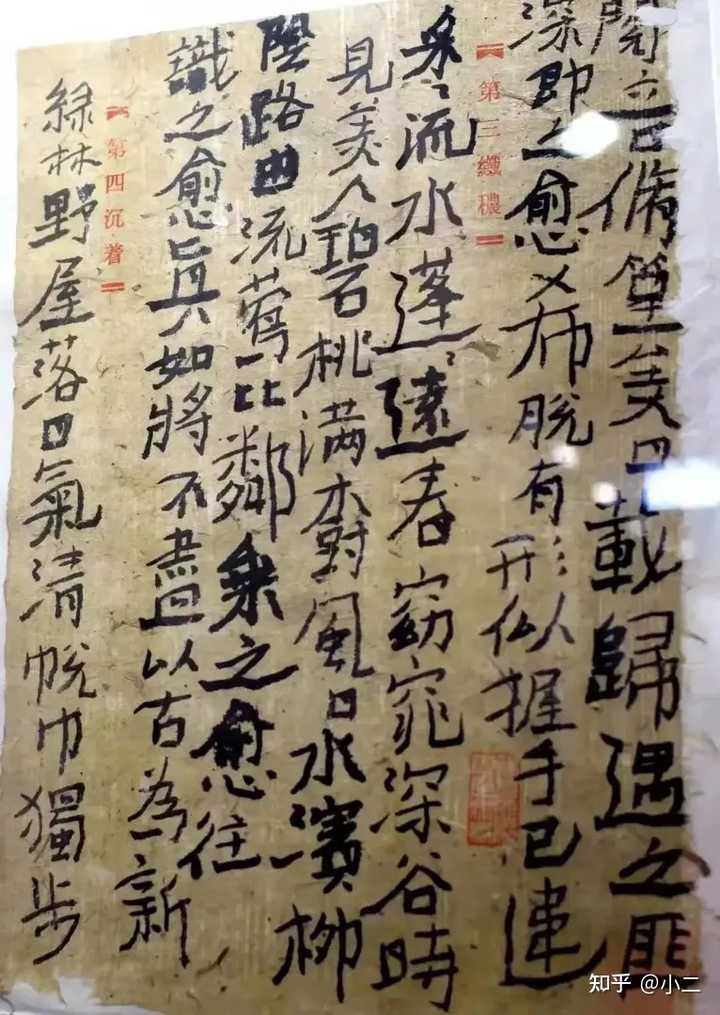 閱音修篁美曰載歸遇之匪
深即之愈希脫有形似握手已違
第三纖穠
采々流水蓬々遠春窈窕深谷時
見美人碧桃满樹風日水濱柳
陰路曲流鶯比鄰乘之愈往
識之愈真如將不盡以古為新
第四沉著
綠林野屋落日氣清帨巾獨步
知乎 @小二